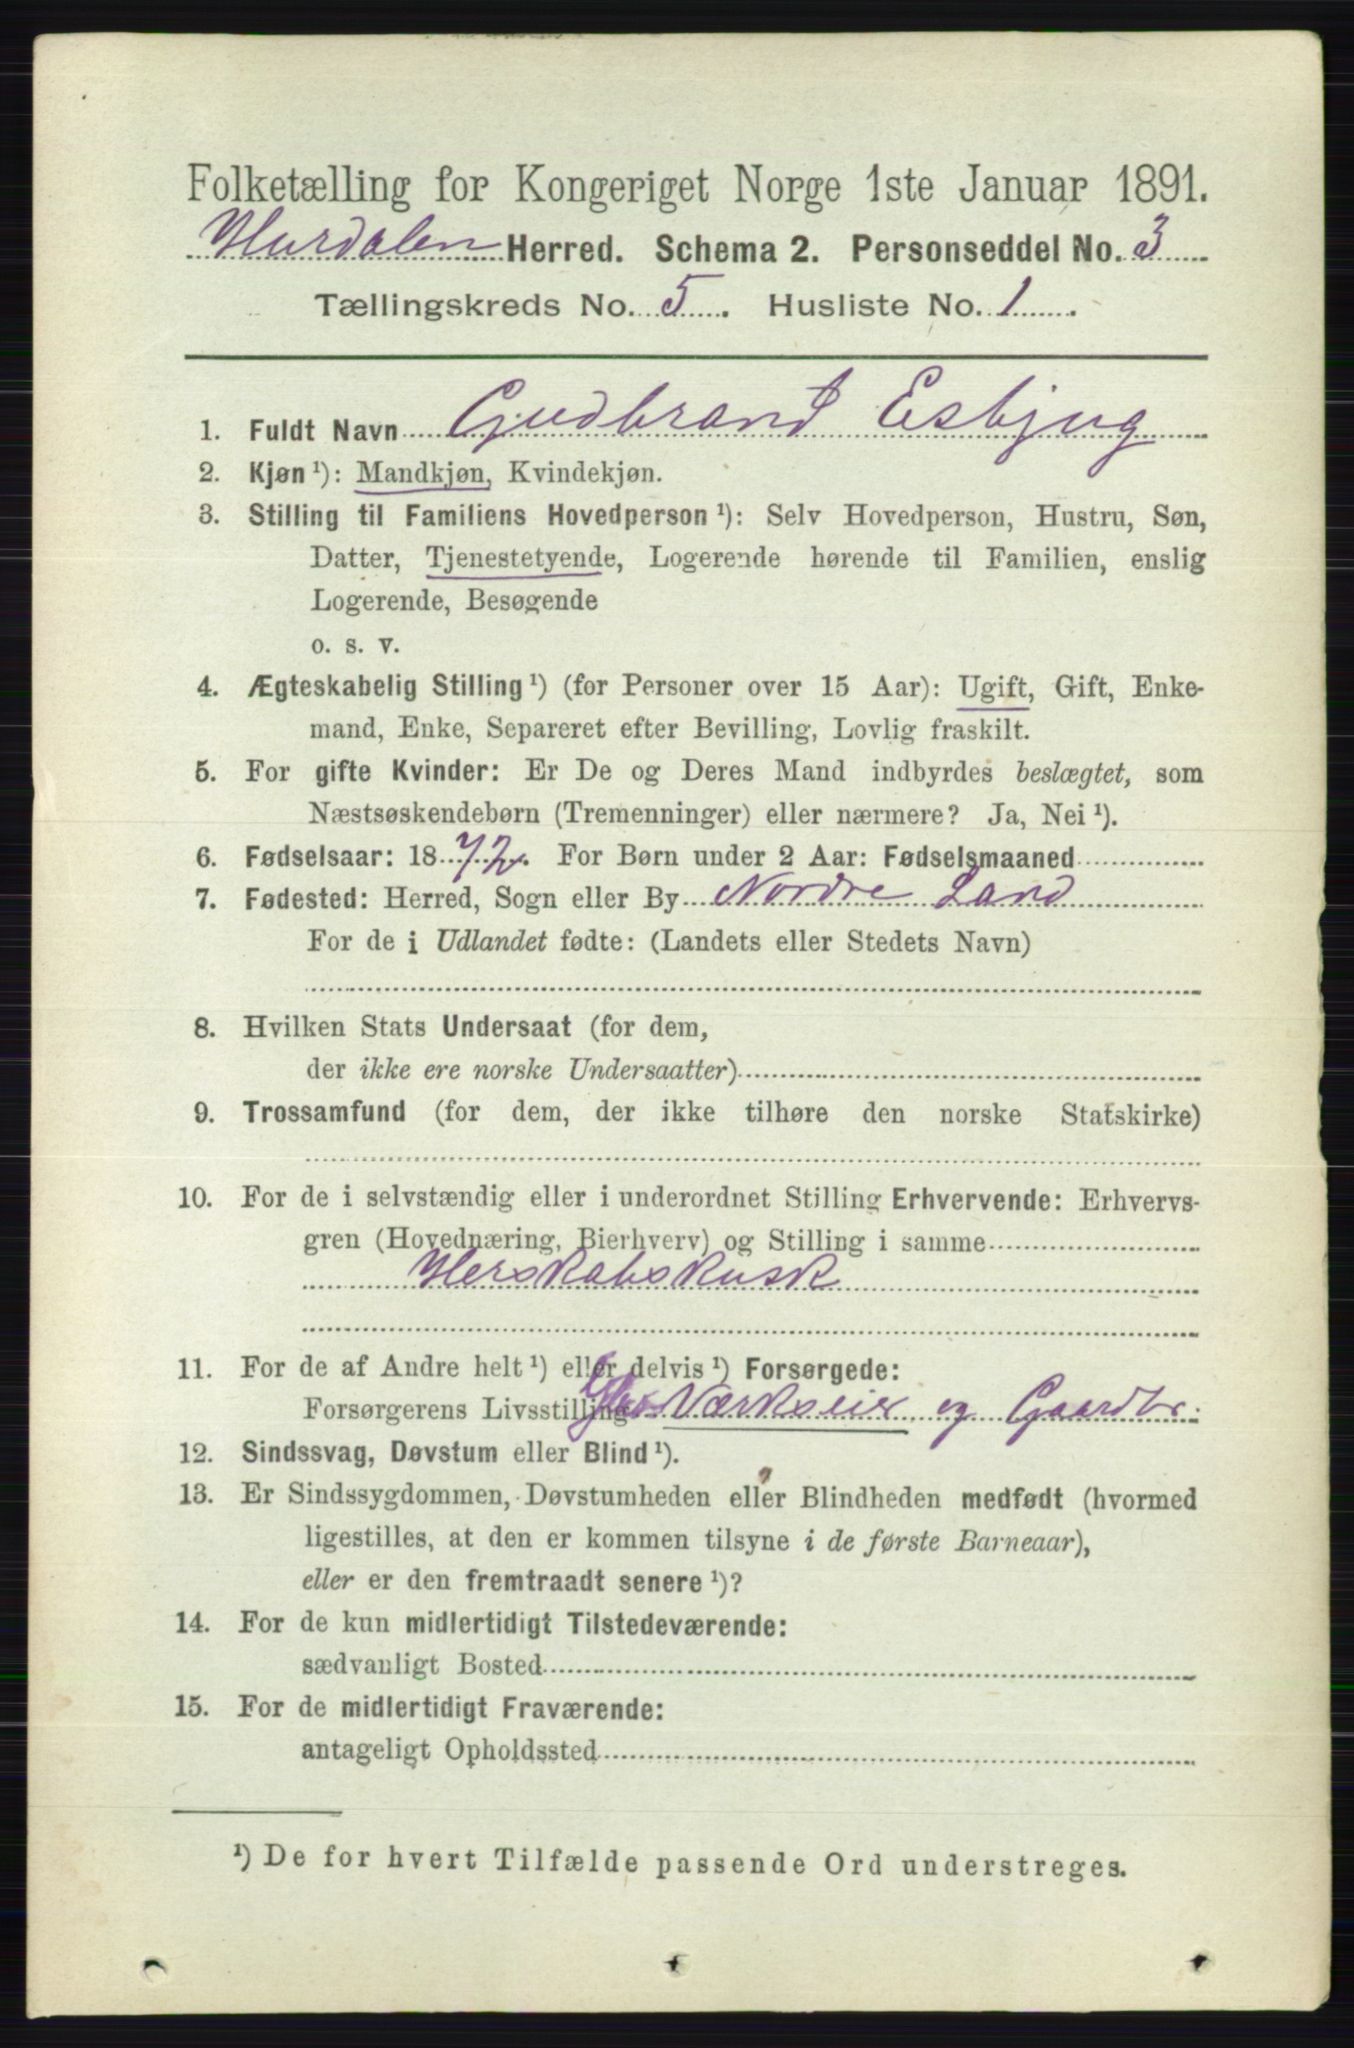 Folketælling for Kongeriget Norge 1ste Januar 1891.
Hurdalen Herred. Schema 2. Personseddel No. 3
Tællingskreds No. 5. Husliste No. 1.
1. Fuldt Navn Gudbrand Esbjug
2. Kjøn ¹): Mandkjøn, Kvindekjøn.
3. Stilling til Familiens Hovedperson ¹): Selv Hovedperson, Hustru, Søn,
Datter, Tjenestetyende, Logerende hørende til Familien, enslig
Logerende, Besøgende
o. s. v.
4. Ægteskabelig Stilling ¹) (for Personer over 15 Aar): Ugift, Gift, Enke-
mand, Enke, Separeret efter Bevilling, Lovlig fraskilt.
5. For gifte Kvinder: Er De og Deres Mand indbyrdes beslægtet, som
Næstsøskendebørn (Tremenninger) eller nærmere? Ja, Nei ¹).
6. Fødselsaar: 1872. For Børn under 2 Aar: Fødselsmaaned
7. Fødested: Herred, Sogn eller By Nordre Land
For de i Udlandet fødte: (Landets eller Stedets Navn)
8. Hvilken Stats Undersaat (for dem,
der ikke ere norske Undersaatter)
9. Trossamfund (for dem, der ikke tilhøre den norske Statskirke)
10. For de i selvstændig eller i underordnet Stilling Erhvervende: Erhvervs-
gren (Hovednæring, Bierhverv) og Stilling i samme
Herskabskusk
11. For de af Andre helt ¹) eller delvis ¹) Forsørgede:
Forsørgerens Livsstilling Glas Værkseier og Gaardbr.
12. Sindssvag, Døvstum eller Blind ¹).
13. Er Sindssygdommen, Døvstumheden eller Blindheden medfødt (hvormed
ligestilles, at den er kommen tilsyne i de første Barneaar),
eller er den fremtraadt senere ¹)?
14. For de kun midlertidigt Tilstedeværende:
sædvanligt Bosted
15. For de midlertidigt Fraværende:
antageligt Opholdssted
¹) De for hvert Tilfælde passende Ord understreges.